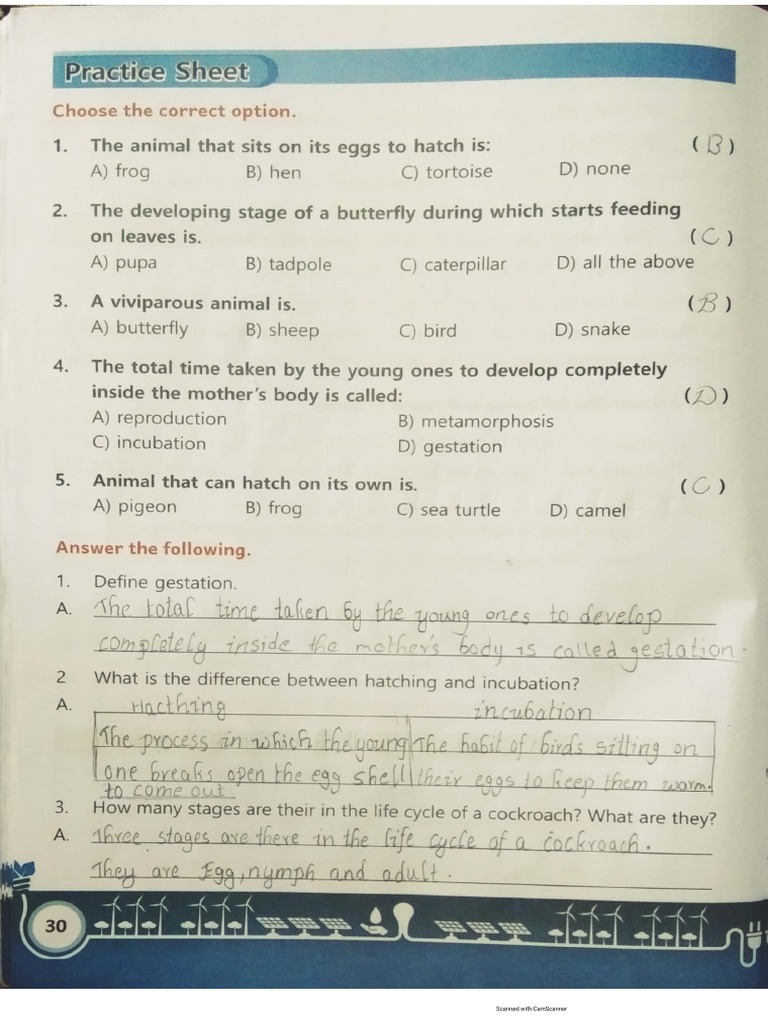 Practice Sheet
Choose the correct option.
1. The animal that sits on its eggs to hatch is: (B)
A) frog B) hen C) tortoise D) none
2. The developing stage of a butterfly during which starts feeding
on leaves is. (C)
A) pupa B) tadpole C) caterpillar D) all the above
3. A viviparous animal is. (B)
A) butterfly B) sheep C) bird D) snake
4. The total time taken by the young ones to develop completely
inside the mother's body is called: (D)
A) reproduction B) metamorphosis
C) incubation D) gestation
5. Animal that can hatch on its own is. (C)
A) pigeon B) frog C) sea turtle D) camel
Answer the following.
1. Define gestation.
A. The total time taken by the young ones to develop
completely inside the mother's body is called gestation.
2 What is the difference between hatching and incubation?
A. Hacthing incubation
The process in which the young The habit of birds sitting on
one breaks open the egg shell their eggs to keep them warm.
to come out
3. How many stages are their in the life cycle of a cockroach? What are they?
A. Three stages are there in the life cycle of a cockroach.
They are Egg, nymph and adult.
30
Scanned with CamScanner